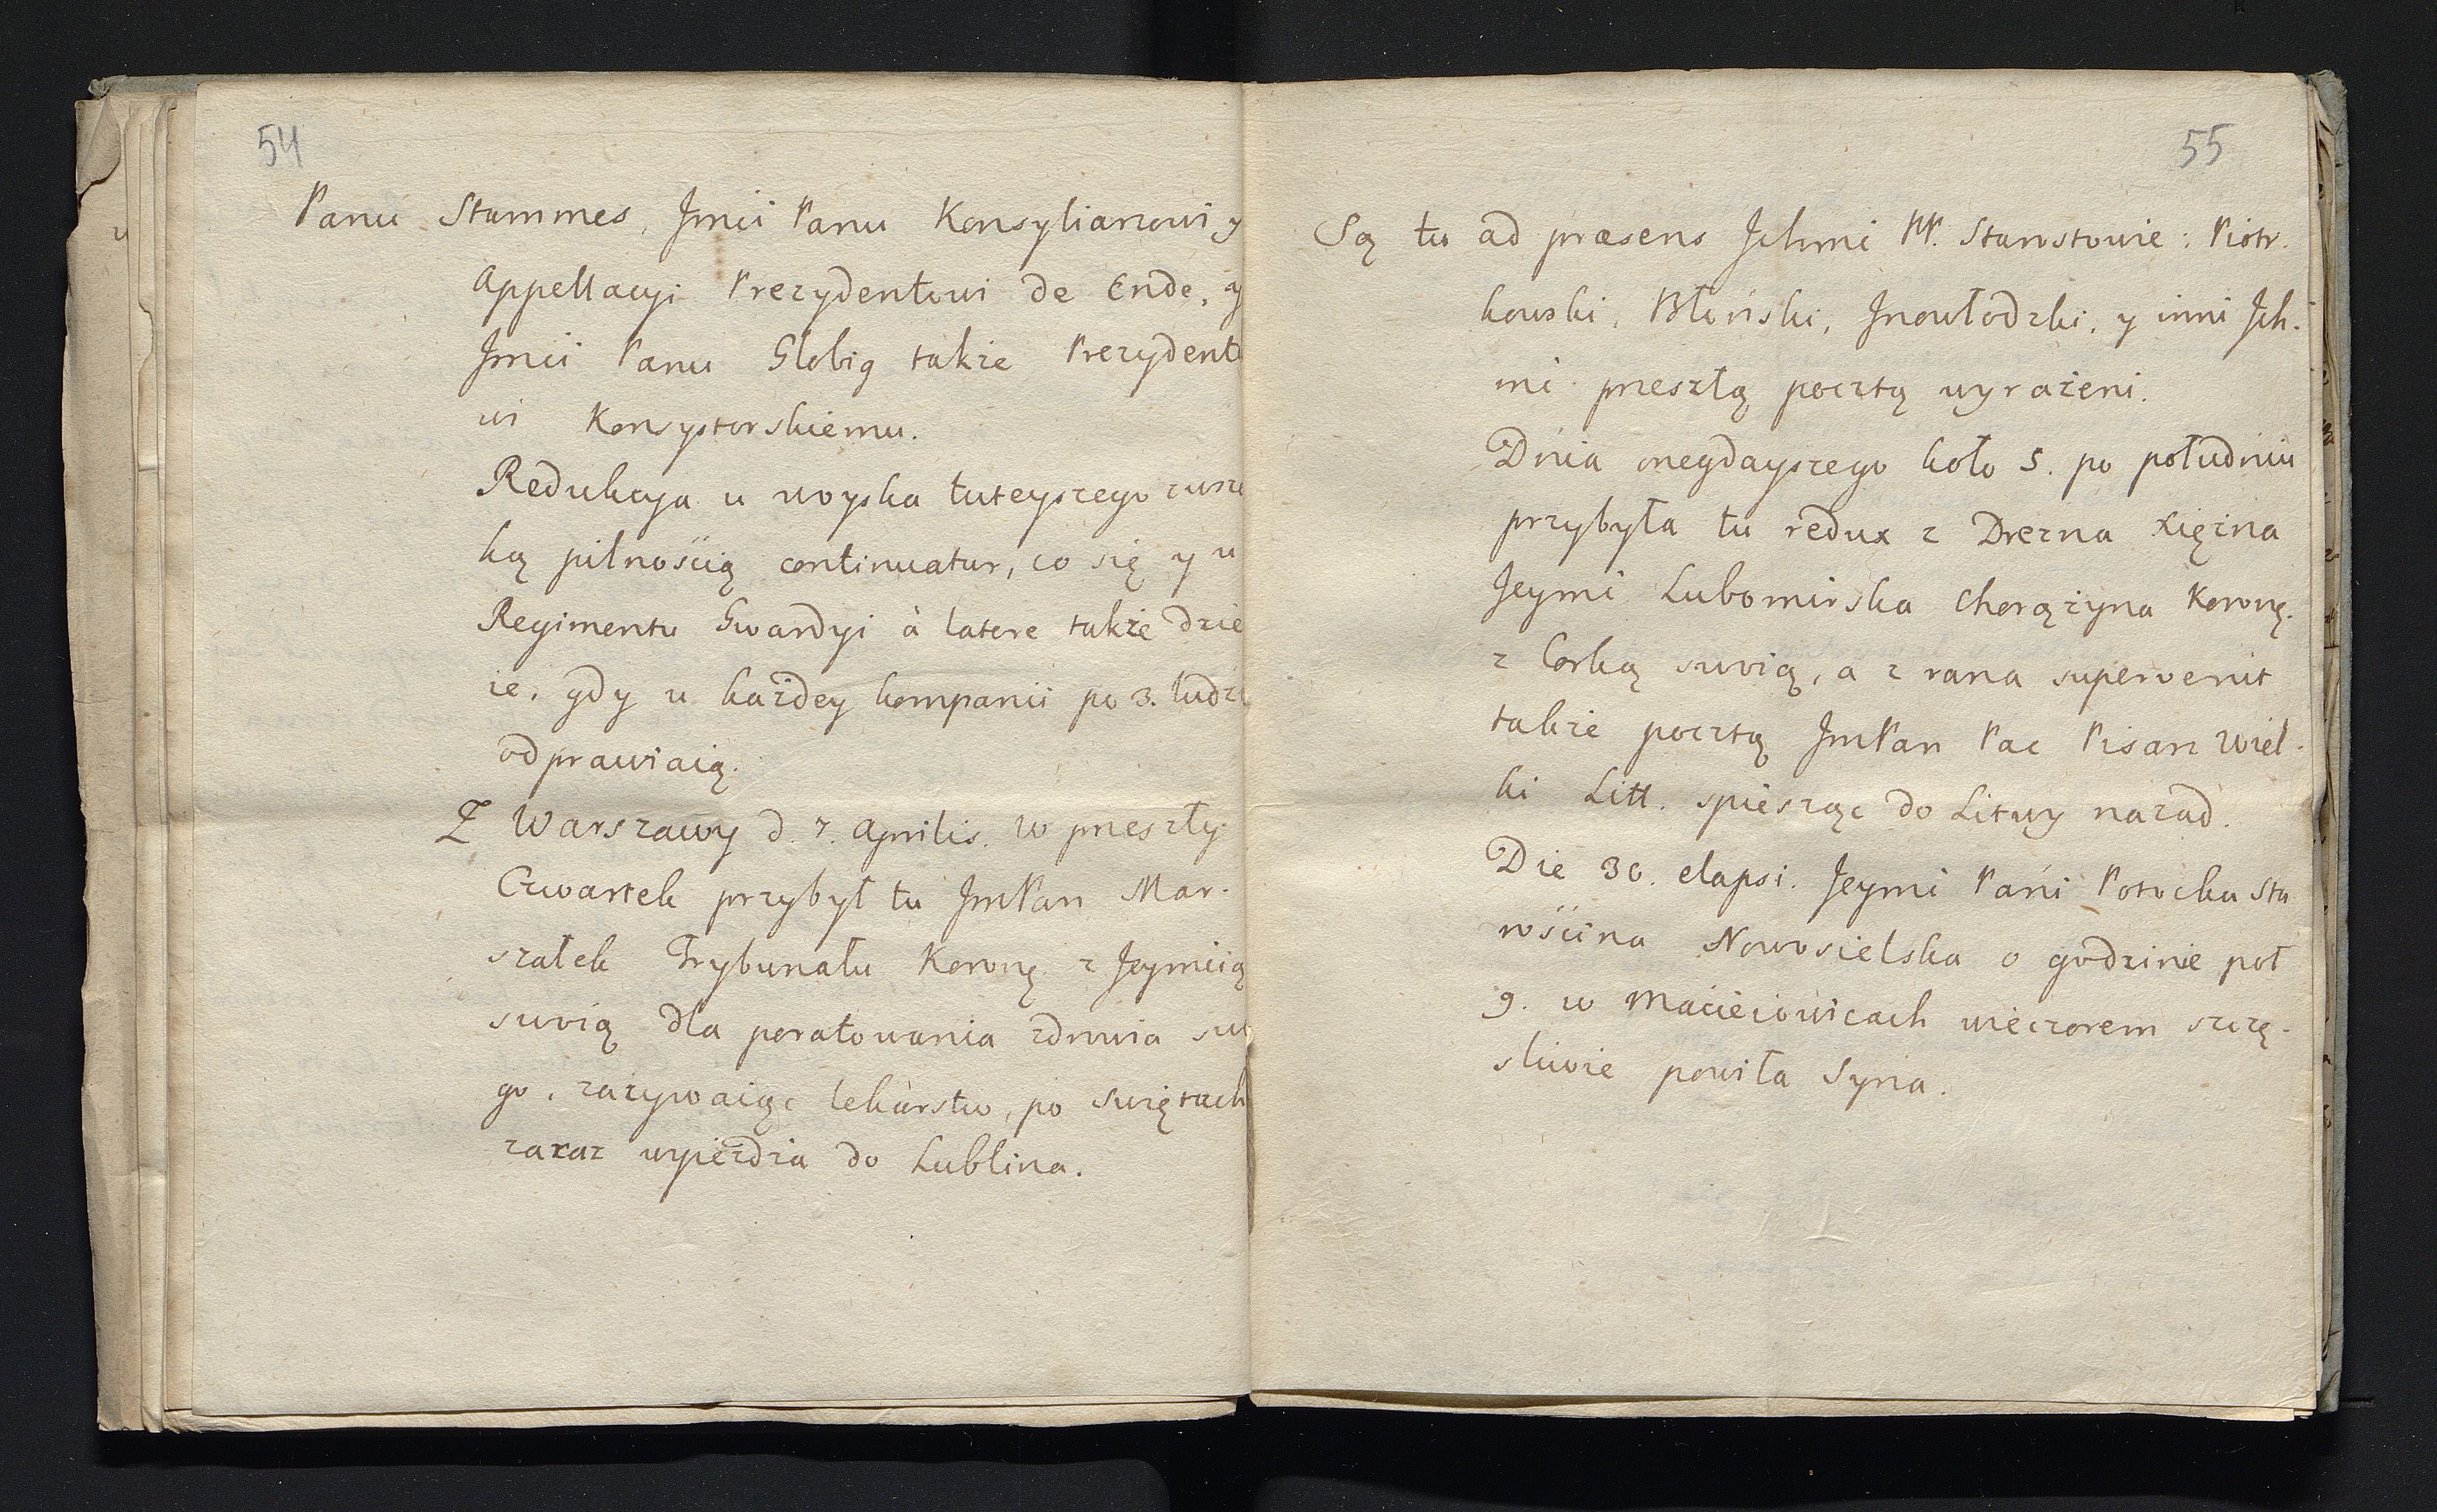 54
Panu Stammes, Jmci Panu Konsyliarzowi y
Appellacyi Prezydentowi de Ende, y
Jmci Panu Globig także Prezydento
wi Konsystorskiemu.
Redukcya u woyska tuteyszego zwsze
ką pilnością continuatur, co się y u
Regimentu Gwardyi à latere także dzie
ie, gdy u każdey kompanii po 3. ludzi
odprawiaią.
Z Warszawy d. 7. Aprilis. W przeszły
Czwartek przybył tu JmPan Mar-
szałek Trybunału Koronę. z Jeymcią
swoią dla poratowania zdrowia swe
go, zażywaiąc lekarstw, po Swiętach
zaraz wyieżdża do Lublina.
55
Są tu ad præsens Jchmć PP. Starostowie: Piotr-
kowski, Błoński, Jnowłodzki, y inni Jch-
mć przeszłą pocztą wyrażeni.
Dnia onegdayszego koło 5. po południu
przybyła tu redux z Drezna Xiężna
Jeymć Lubomirska Chorążyna Koronę.
z Corką swoią, a z rana supervenit
także pocztą JmPan Pac Pisarz Wiel-
ki Litt. spiesząc do Litwy nazad.
Die 30. elapsi. Jeymć Pani Potocka Sta
rościna Nowosielska o godzinie poł
9. w Macieiowicach wieczorem szczę-
sliwie powiła Syna.